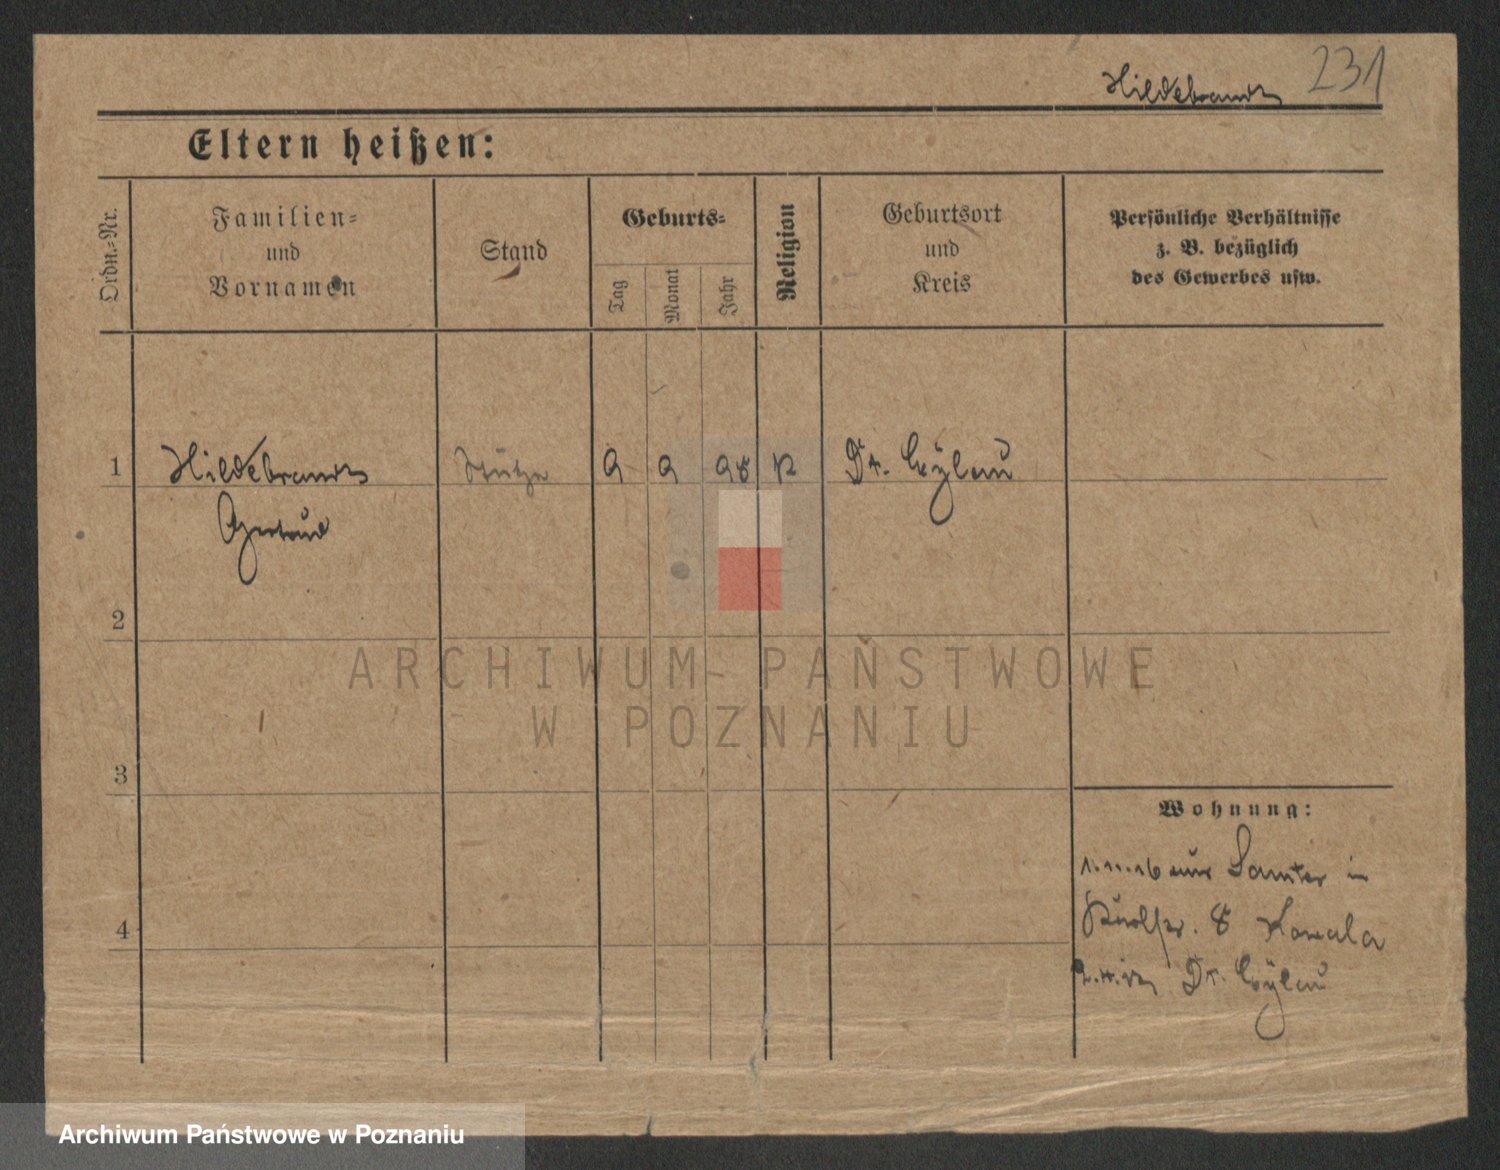 Hildebrandt 231
Eltern heißen:
Ordn.-Nr.
Familien-
und
Vornamen
Stand
Geburts-
Tag
Monat
Jahr
Religion
Geburtsort
und
Kreis
Persönliche Verhältnisse
z. B. bezüglich
des Gewerbes usw.
1 Hildebrandt Stütze 9 9 98 Dt. Eylau
Gertrud
2
3
4
Wohnung:
aus Samter in
8 Kowala
Dt. Eylau
ARCHIWUM PAŃSTWOWE
W POZNANIU
Archiwum Państwowe w Poznaniu